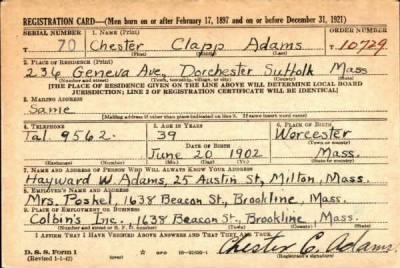 REGISTRATION CARD—(Men born on or after February 17, 1897 and on or before December 31, 1921)
SERIAL NUMBER 1. NAME (Print) ORDER NUMBER
T 70 Chester Clapp Adams T 10729
(First) (Middle) (Last)
2. PLACE OF RESIDENCE (Print)
236 Geneva Ave, Dorchester Suffolk Mass
(Number and street) (Town, township, village, or city) (County) (State)
[THE PLACE OF RESIDENCE GIVEN ON THE LINE ABOVE WILL DETERMINE LOCAL BOARD
JURISDICTION; LINE 2 OF REGISTRATION CERTIFICATE WILL BE IDENTICAL]
3. MAILING ADDRESS
Same
[Mailing address if other than place indicated on line 2. If same insert word same]
4. TELEPHONE 5. AGE IN YEARS 6. PLACE OF BIRTH
Tal. 9562. 39 Worcester
DATE OF BIRTH (Town or county)
June 20 1902 Mass.
(Exchange) (Number) (Mo.) (Day) (Yr.) (State or country)
7. NAME AND ADDRESS OF PERSON WHO WILL ALWAYS KNOW YOUR ADDRESS
Hayward W. Adams, 25 Austin St, Milton, Mass.
8. EMPLOYER'S NAME AND ADDRESS
Mrs. Poshel, 1638 Beacon St, Brookline, Mass.
9. PLACE OF EMPLOYMENT OR BUSINESS
Inc., 1638 Beacon St., Brookline, Mass.
(Number and street or R. F. D. number) (Town) (County) (State)
I AFFIRM THAT I HAVE VERIFIED ABOVE ANSWERS AND THAT THEY ARE TRUE.
D. S. S. Form 1 Chester C. Adams.
(Revised 1-1-42) (over) (Registrant's signature)